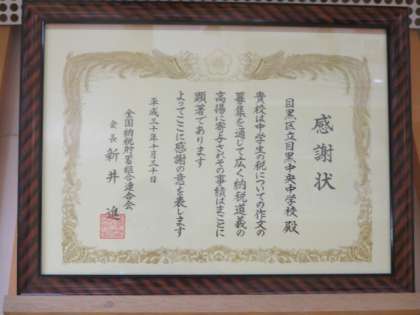 感謝状
目黒区立目黒中央中学校 殿
貴校は中学生の税についての作文の
募集を通じて広く納税道義の
高揚に寄与されその事績はまことに
顕著であります
よってここに感謝の意を表します
平成二十年十月三十日
全国納税貯蓄組合連合会
会長 新井 進